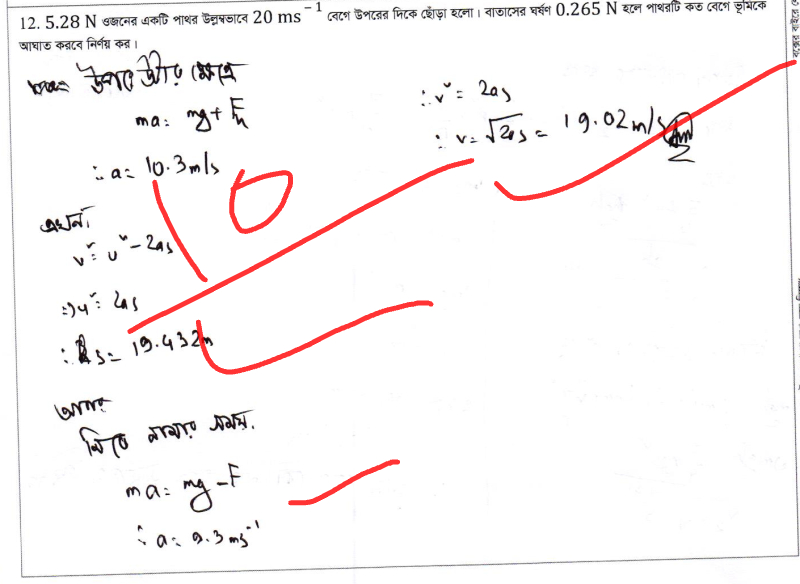 12. 5.28 N ওজনের একটি পাথর উলম্বভাবে 20 ms⁻¹ বেগে উপরের দিকে ছোঁড়া হলো। বাতাসের ঘর্ষণ 0.265 N হলে পাথরটি কত বেগে ভূমিকে
আঘাত করবে নির্ণয় কর।
উপরে উঠার ক্ষেত্রে
ma = mg + Fₖ
∴ a = 10.3 m/s
এখন,
v² = u² - 2as
⇒ u² = 2as
∴ s = 19.432m
আবার
নিচে নামার সময়,
ma = mg - F
∴ a = 9.3 ms⁻¹
∴ v² = 2as
∴ v = √2as = 19.02 m/s (Am)
0